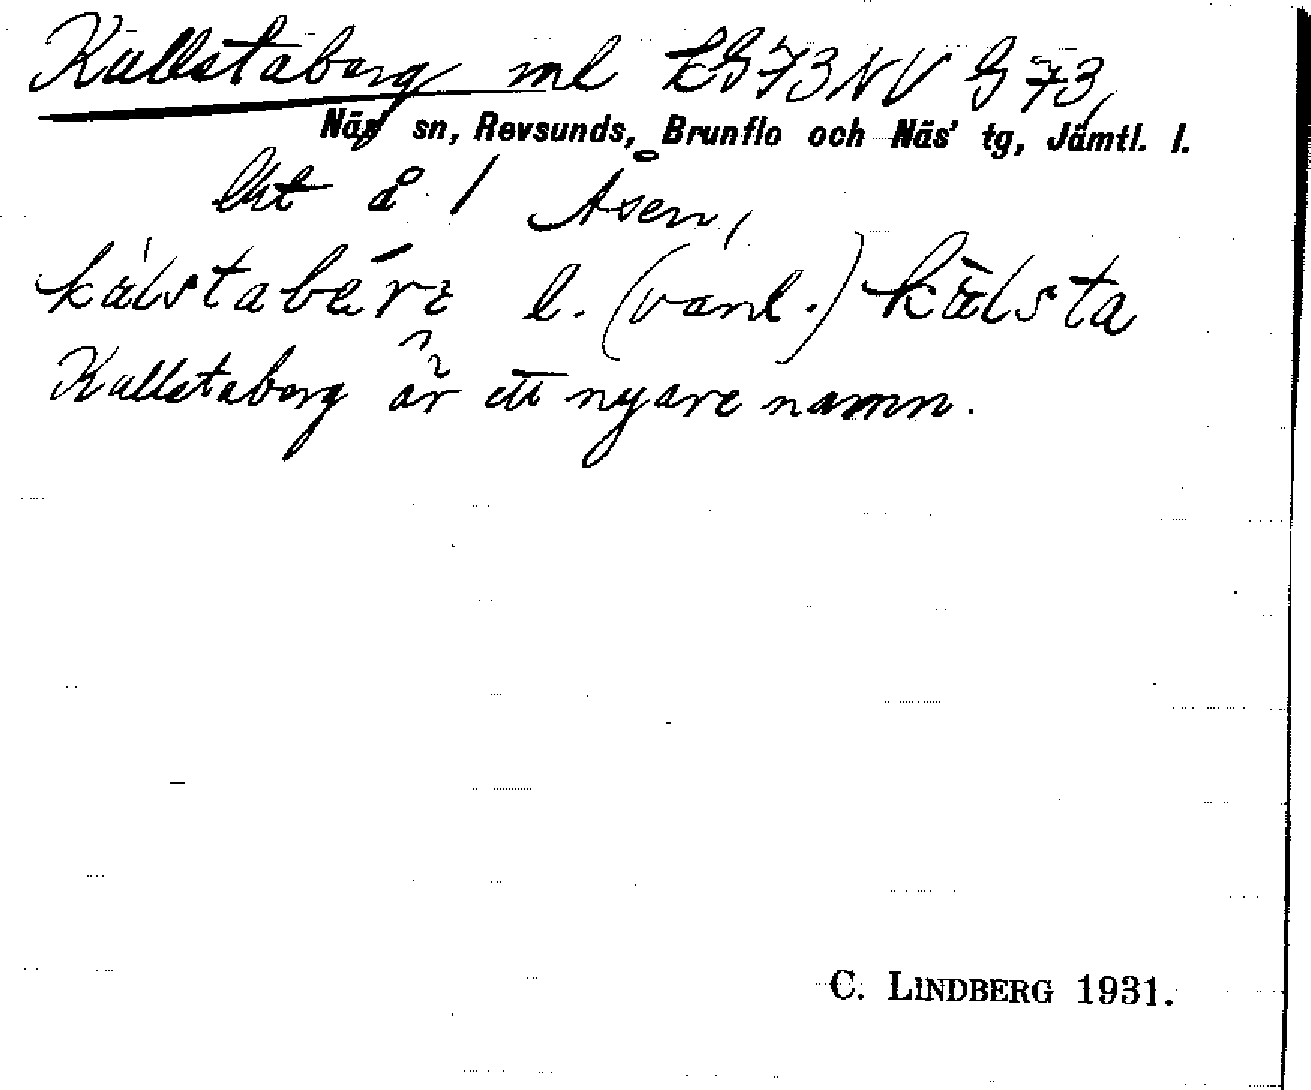 Källstaberg ml LG73NV G 73,
Näs sn, Revsunds, Brunflo och Näs' tg, Jämtl. l.
å 1 Åsen,
l. (vanl.) kälsta
Källstaberg är ett nyare namn.
C. LINDBERG 1931.